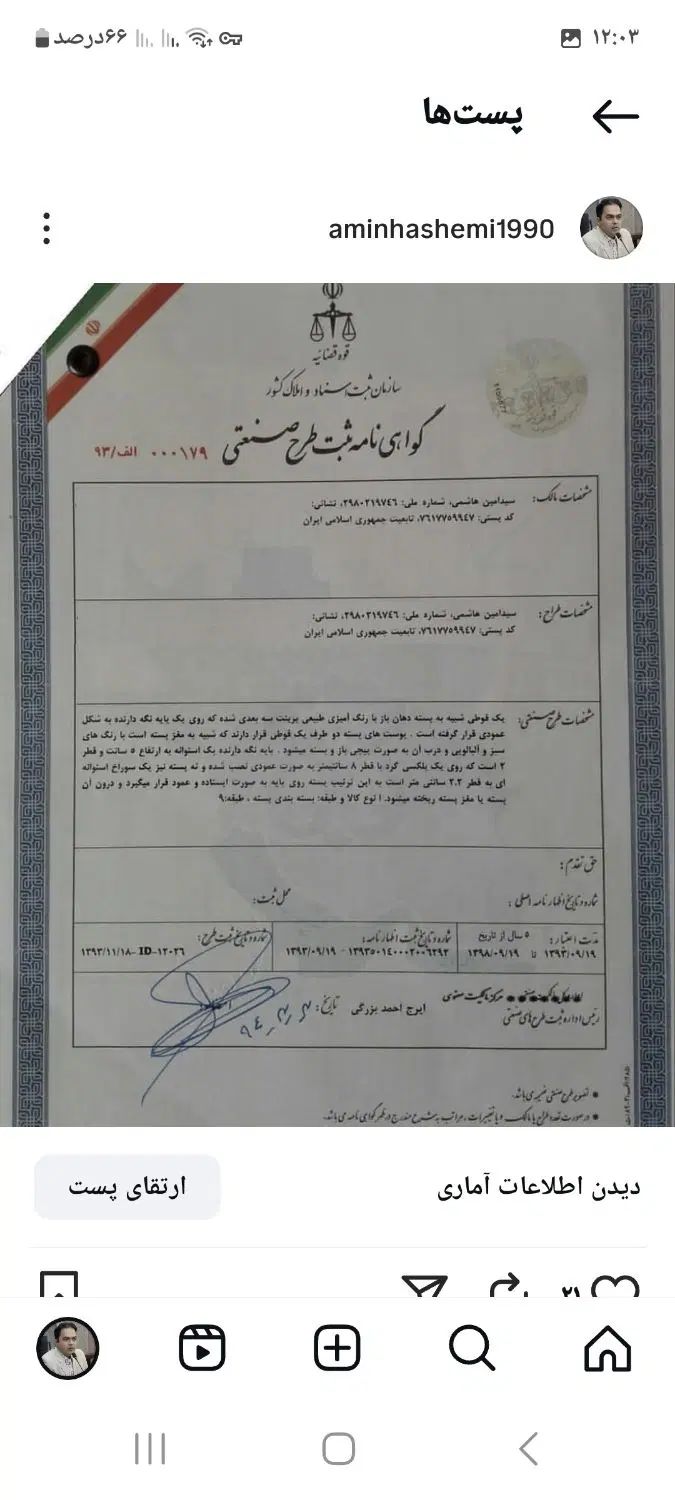 ۱۲:۰۳
۶۶درصد
پست‌ها
aminhashemi1990
قوه قضائیه
سازمان ثبت اسناد و املاک کشور
گواهی نامه ثبت طرح صنعتی
۰۰۰۱۷۹ الف/۹۳
مشخصات مالک: سیدامین هاشمی، شماره ملی: ۲۹۸۰۲۱۹۷٤٦، نشانی:
کد پستی: ۷٦۱۷۷۵۹۹٤۷، تابعیت جمهوری اسلامی ایران
مشخصات طراح: سیدامین هاشمی، شماره ملی: ۲۹۸۰۲۱۹۷٤٦، نشانی:
کد پستی: ۷٦۱۷۷۵۹۹٤۷، تابعیت جمهوری اسلامی ایران
مشخصات طرح صنعتی: یک قوطی شبیه به پسته دهان باز با رنگ آمیزی طبیعی پرینت سه بعدی شده که روی یک پایه نگه دارنده به شکل
عمودی قرار گرفته است . پوست های پسته دو طرف یک قوطی قرار دارند که شبیه به مغز پسته است با رنگ های
سبز و آلبالویی و درب آن به صورت پیچی باز و بسته میشود . پایه نگه دارنده یک استوانه به ارتفاع ۵ سانت و قطر
۲ است که روی یک پلکسی گرد با قطر ۸ سانتیمتر به صورت عمودی نصب شده و ته پسته نیز یک سوراخ استوانه
ای به قطر ۲.۲ سانتی متر است به این ترتیب پسته روی پایه به صورت ایستاده و عمود قرار میگیرد و درون آن
پسته یا مغز پسته ریخته میشود. ا نوع کالا و طبقه: بسته بندی پسته ، طبقه:۹
حق تقدم:
شماره و تاریخ اظهارنامه اصلی: محل ثبت:
مدت اعتبار: ۵ سال از تاریخ
۱۳۹۳/۰۹/۱۹ تا ۱۳۹۸/۰۹/۱۹
شماره و تاریخ ثبت اظهارنامه:
۱۳۹۳۵۰۱٤۰۰۰۳۰۰٦۲۹۳ - ۱۳۹۳/۰۹/۱۹
شماره و تاریخ ثبت طرح:
۱۳۹۳/۱۱/۱۸- ID-۱۲۰۲٦
مرکز مالکیت معنوی
رئیس اداره ثبت طرح های صنعتی
ایرج احمد بزرگی
تاریخ:
* تصویر طرح صنعتی ضمیمه می باشد.
* در صورت تعدد طراح یا مالک و یا تغییرات، مراتب به شرح مندرج در ظهر گواهی نامه می باشد.
دیدن اطلاعات آماری
ارتقای پست
۲۱